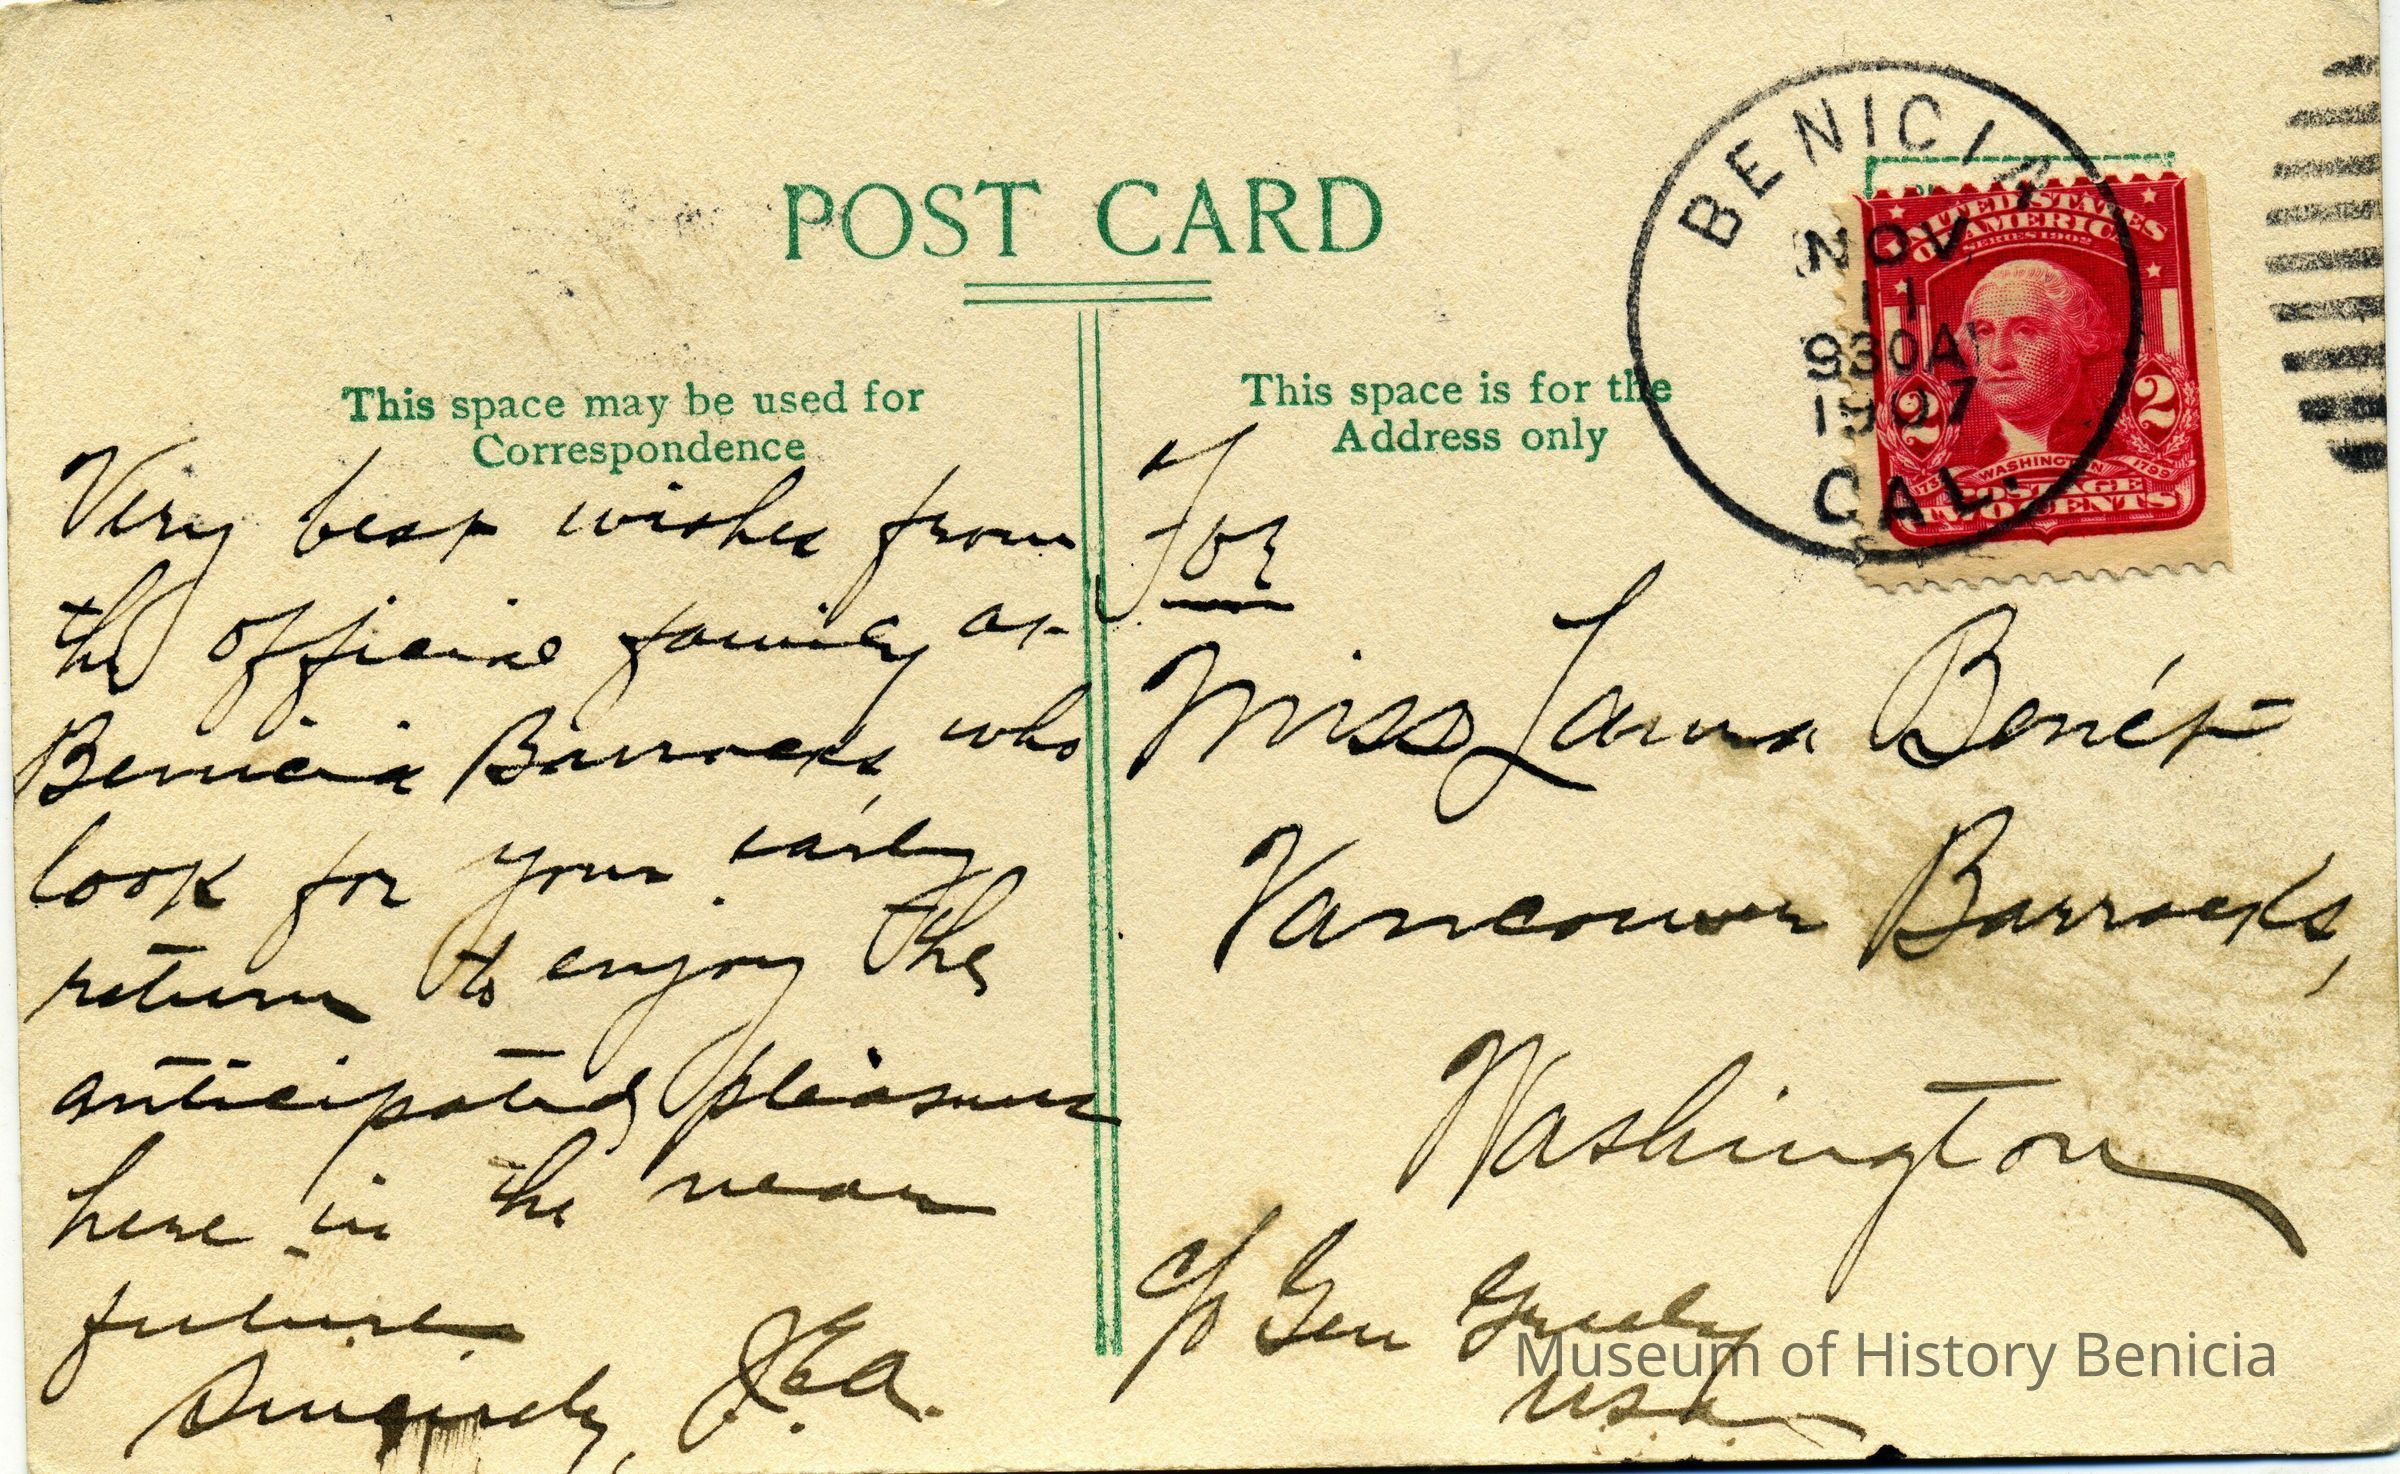 POST CARD
This space may be used for
Correspondence
Very best wishes from
the official family at
Benicia Barracks, who
look for your early
return to enjoy the
anticipated pleasure
here in the near
future.
Sincerely, J.E.A.
This space is for the
Address only
For
Miss Laura Benét
Vancouver Barracks,
Washington
c/o Gen Greely
USA
BENICIA
NOV
11
930A
1907
CAL.
UNITED STATES
OF AMERICA
SERIES 1902
2 2
WASHINGTON
1799
POSTAGE
TWO CENTS
Museum of History Benicia